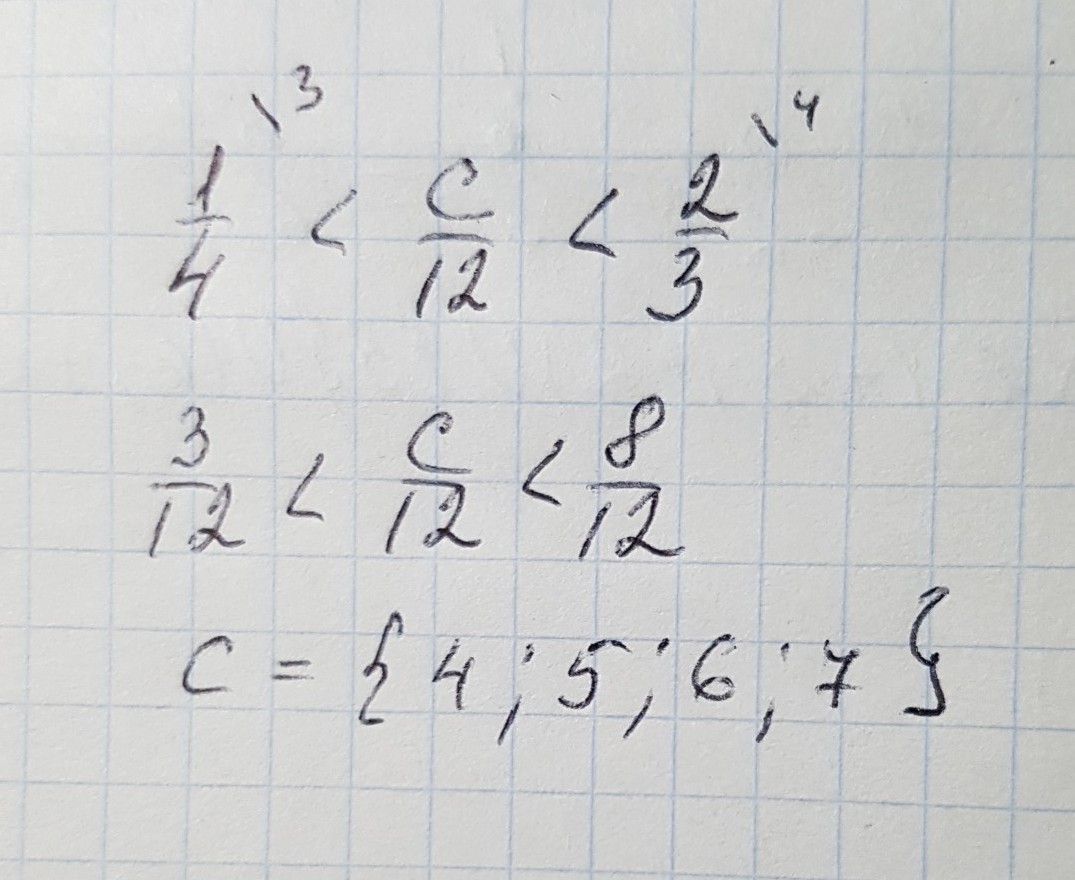 1/4 \3 < C/12 < 2/3 \4
3/12 < C/12 < 8/12
C = {4; 5; 6; 7}